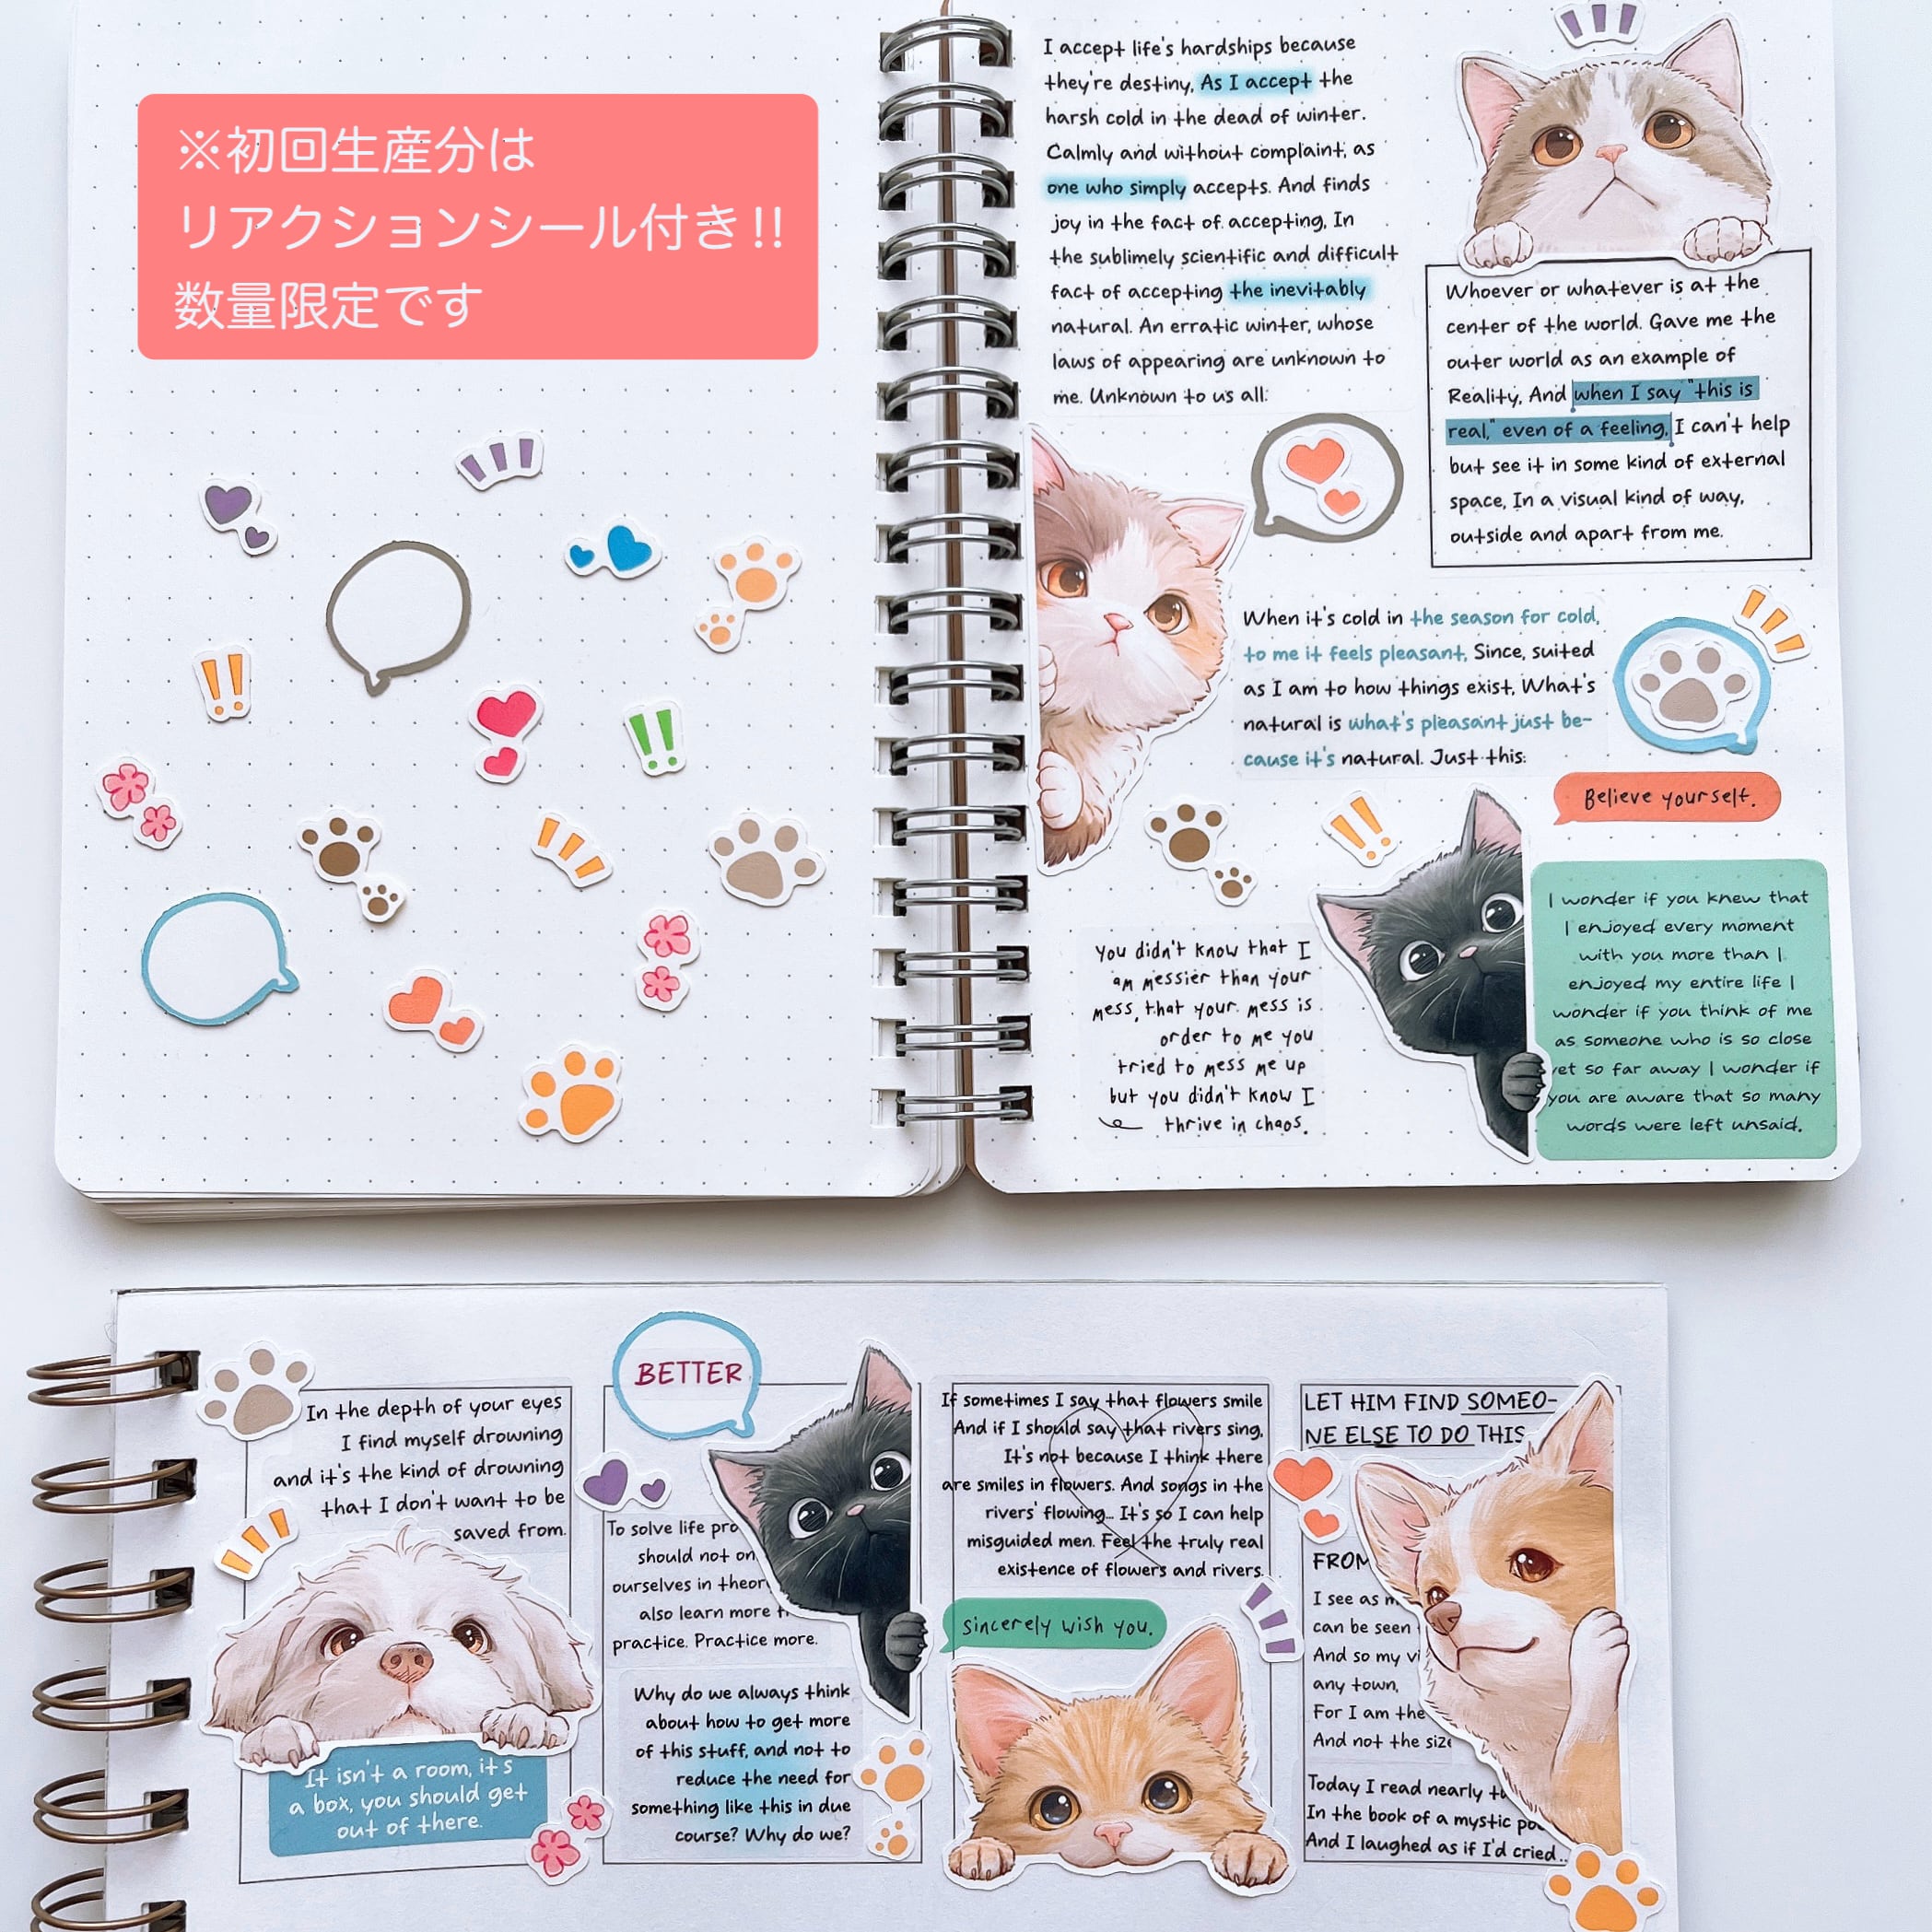 ※初回生産分は
リアクションシール付き!!
数量限定です
I accept life's hardships because
they're destiny, As I accept the
harsh cold in the dead of winter.
Calmly and without complaint, as
one who simply accepts. And finds
joy in the fact of accepting, In
the sublimely scientific and difficult
fact of accepting the inevitably
natural. An erratic winter, whose
laws of appearing are unknown to
me. Unknown to us all:
Whoever or whatever is at the
center of the world. Gave me the
outer world as an example of
Reality, And when I say "this is
real," even of a feeling, I can't help
but see it in some kind of external
space, In a visual kind of way,
outside and apart from me.
When it's cold in the season for cold,
to me it feels pleasant, Since, suited
as I am to how things exist, What's
natural is what's pleasant just be-
cause it's natural. Just this:
Believe yourself.
I wonder if you knew that
I enjoyed every moment
with you more than I
enjoyed my entire life I
wonder if you think of me
as someone who is so close
yet so far away I wonder if
you are aware that so many
words were left unsaid.
you didn't know that I
am messier than your
mess, that your mess is
order to me you
tried to mess me up
but you didn't know I
thrive in chaos.
In the depth of your eyes
I find myself drowning
and it's the kind of drowning
that I don't want to be
saved from.
It isn't a room, it's
a box, you should get
out of there.
BETTER
To solve life pro
should not on
ourselves in theor
also learn more
practice. Practice more.
Why do we always think
about how to get more
of this stuff, and not to
reduce the need for
something like this in due
course? Why do we?
If sometimes I say that flowers smile
And if I should say that rivers sing,
It's not because I think there
are smiles in flowers. And songs in the
rivers' flowing... It's so I can help
misguided men. Feel the truly real
existence of flowers and rivers.
sincerely wish you.
LET HIM FIND SOMEO-
NE ELSE TO DO THIS
FROM
I see as m
can be seen
And so my vi
any town,
For I am the
And not the size
Today I read nearly t
In the book of a mystic po
And I laughed as if I'd cried...